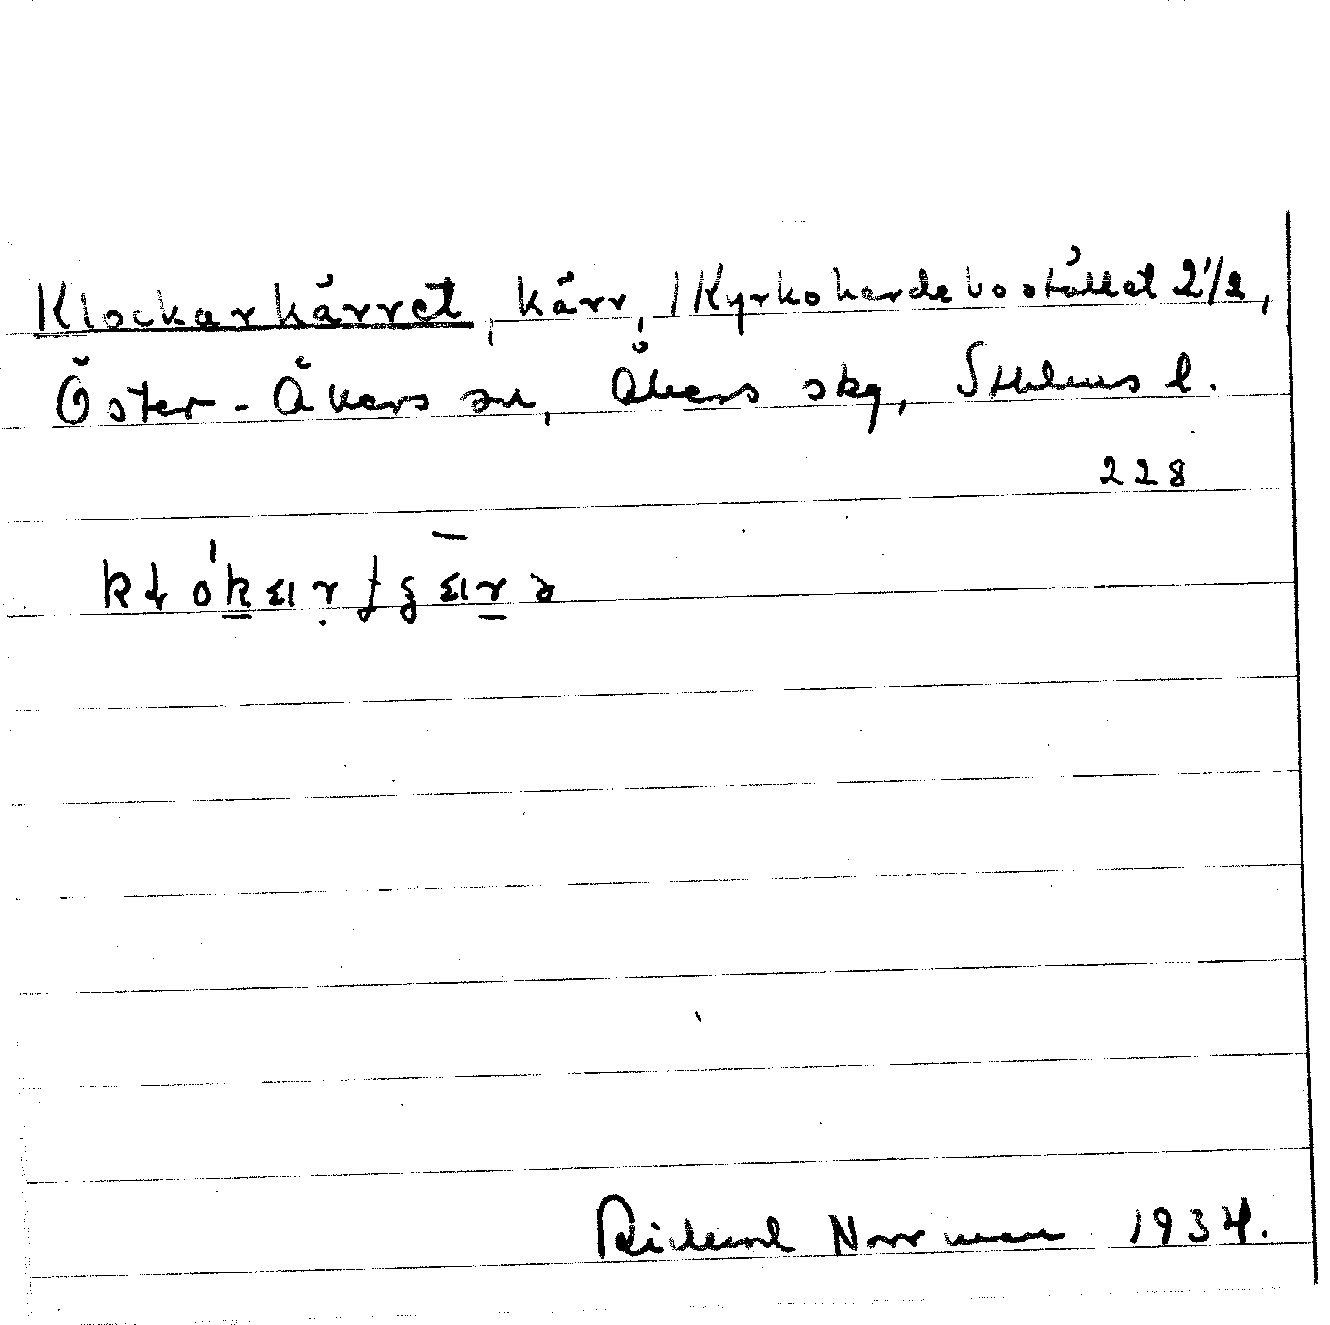 Klockarkärret, kärr, 1 Kyrkoherdebostället 2 1/2,
Öster-Åkers sn, Åkers skg, Sthlms l.
228
Rickard Norrman 1934.